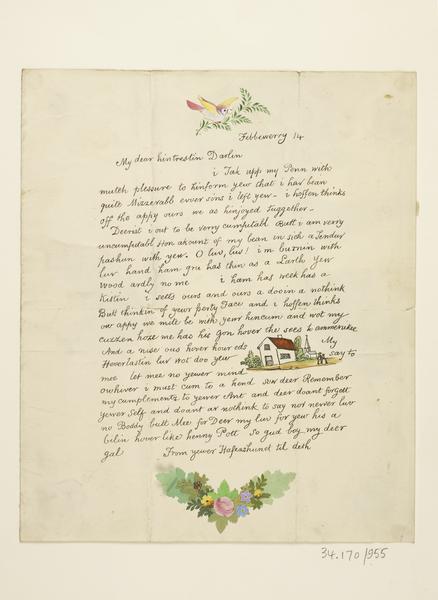 Febbewerry 14
My dear hintrestin Darlin
i Tak upp my Penn with
mutch plessure to hinform yew that i hav bean
quite Mizzerabb evver sins i left yew - i hoffen thinks
off the appy ours we as hinjoyed Juggether -
Deerist i out to be verry cumfutabl Butt i am verry
uncumfutabl Hon akount of my bean in sich a Tender
pashun with yew. O luv, luv! i'm burnin with
luv hand ham gru has thin as a Larth Yew
wood ardly no me i ham has week has a
Kitlin i setts ours and ours a dooin a nothink
Butt thinkin of yewr porty Face and i hoffen thinks
ow appy we mite be with yewr hincum and wot my
cuzzen hoze me has his gon hover the sees to ammerikee
And a nise ous hover hour eds My
Hoverlastin luv wot doo yew say to
mee let mee no yewer mind
owhiver i must cum to a hend sow deer Remember
my cumplements to yewer Ant and deer doant forgett
yewer Self and doant ar nothink to say not nevver luv
no Boddy butt Mee for Deer my luv for yew his a
bilin hover like henny Pott So gud boy my deer
gal From yewer Hafexshunet til deth
34.170/955